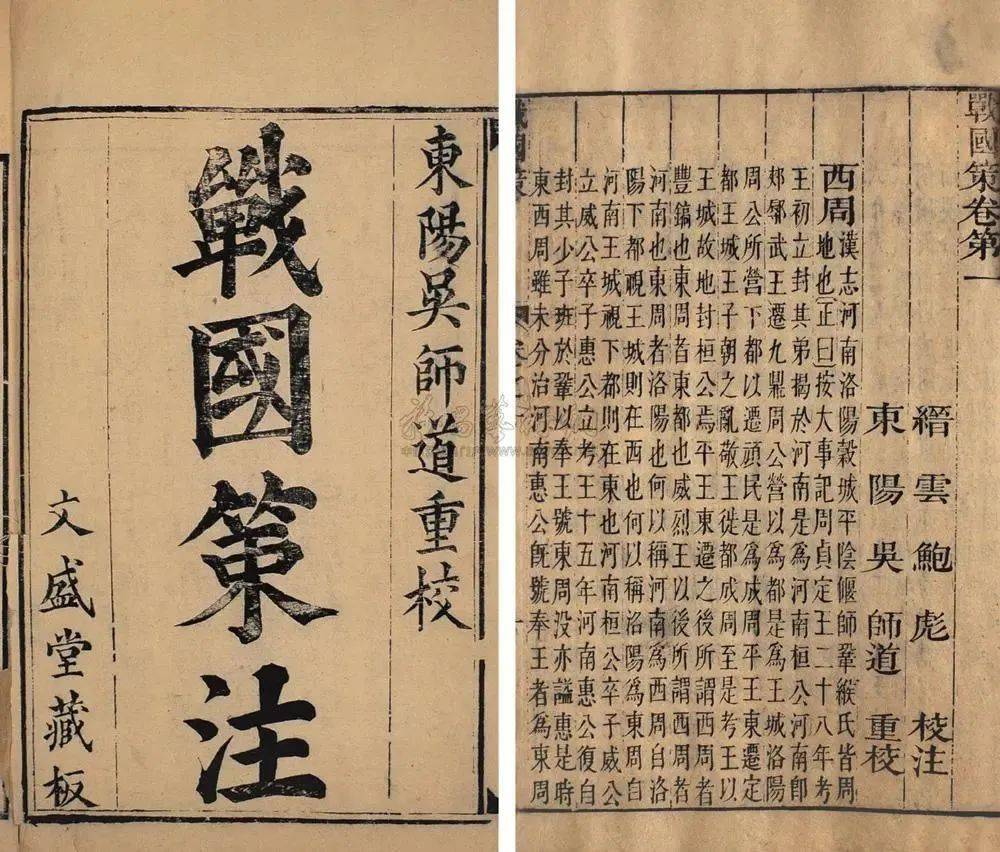 東陽吳師道重校
戰國策注
文盛堂藏板
戰國策卷第一
縉雲 鮑彪 校注
東陽 吳師道 重校
西周 漢志河南洛陽穀城平陰偃師鞏緱氏皆周
地也正曰按大事記周貞定王二十八年考
王初立封其弟揭於河南是爲河南桓公河南即
郟鄏武王遷九鼎周公營以爲都是爲王城洛陽
周公所營下都以遷頑民是爲成周平王東遷定
都王城王子朝之亂敬王徙都成周至是考王以
王城故地封桓公焉平王東遷之後所謂西周者
豐鎬也東周者東都也威烈王以後所謂西周者
河南也東周者洛陽也何以稱河南爲西周自洛
陽下都視王城則在西也何以稱洛陽爲東周自
河南王城視下都則在東也河南桓公卒子威公
立威公卒子惠公立考王十五年河南惠公復自
封其少子班於鞏以奉王號東周没亦諡惠是時
東西周雖未分治河南惠公旣號奉王者爲東周